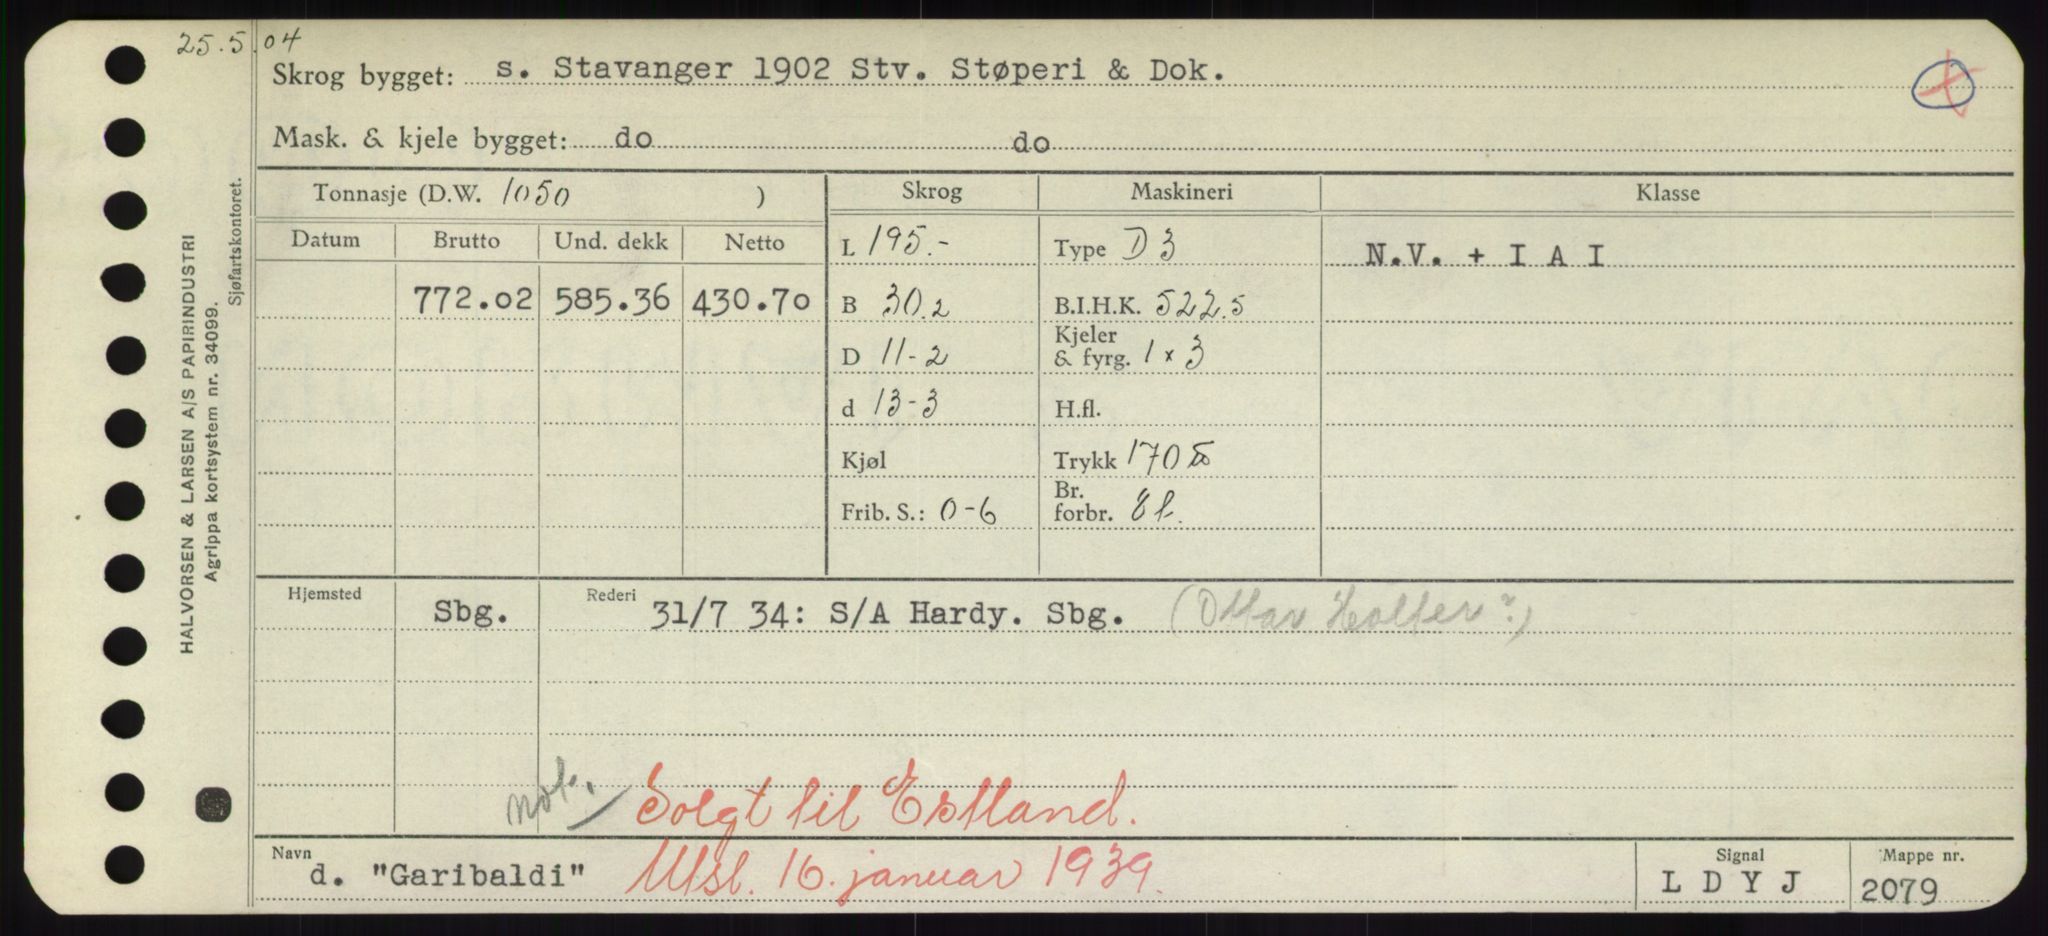 25.5.04
Skrog bygget: s. Stavanger 1902 Stv. Støperi & Dok.
Mask. & kjele bygget: do do
Tonnasje (D.W. 1050 ) Skrog Maskineri Klasse
Datum Brutto Und. dekk Netto L 195.- Type D 3 N.V. + I A I
772.02 585.36 430.70 B 30.2 B.I.H.K. 522.5
D 11-2 Kjeler & fyrg. 1 x 3
d 13-3 H.fl.
Kjøl Trykk 170
Frib. S.: 0-6 Br. forbr. 8 t.
Hjemsted Sbg. Rederi 31/7 34: S/A Hardy. Sbg. (Ottar Holter?)
not. Solgt til Estland.
Navn d. "Garibaldi" Utsl. 16. januar 1939. Signal L D Y J Mappe nr. 2079
HALVORSEN & LARSEN A/S PAPIRINDUSTRI
Agrippa kortsystem nr. 34099.
Sjøfartskontoret.